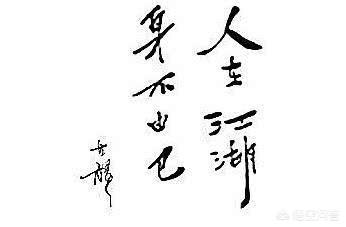 人在江湖
身不由己
古龍
悟空问答